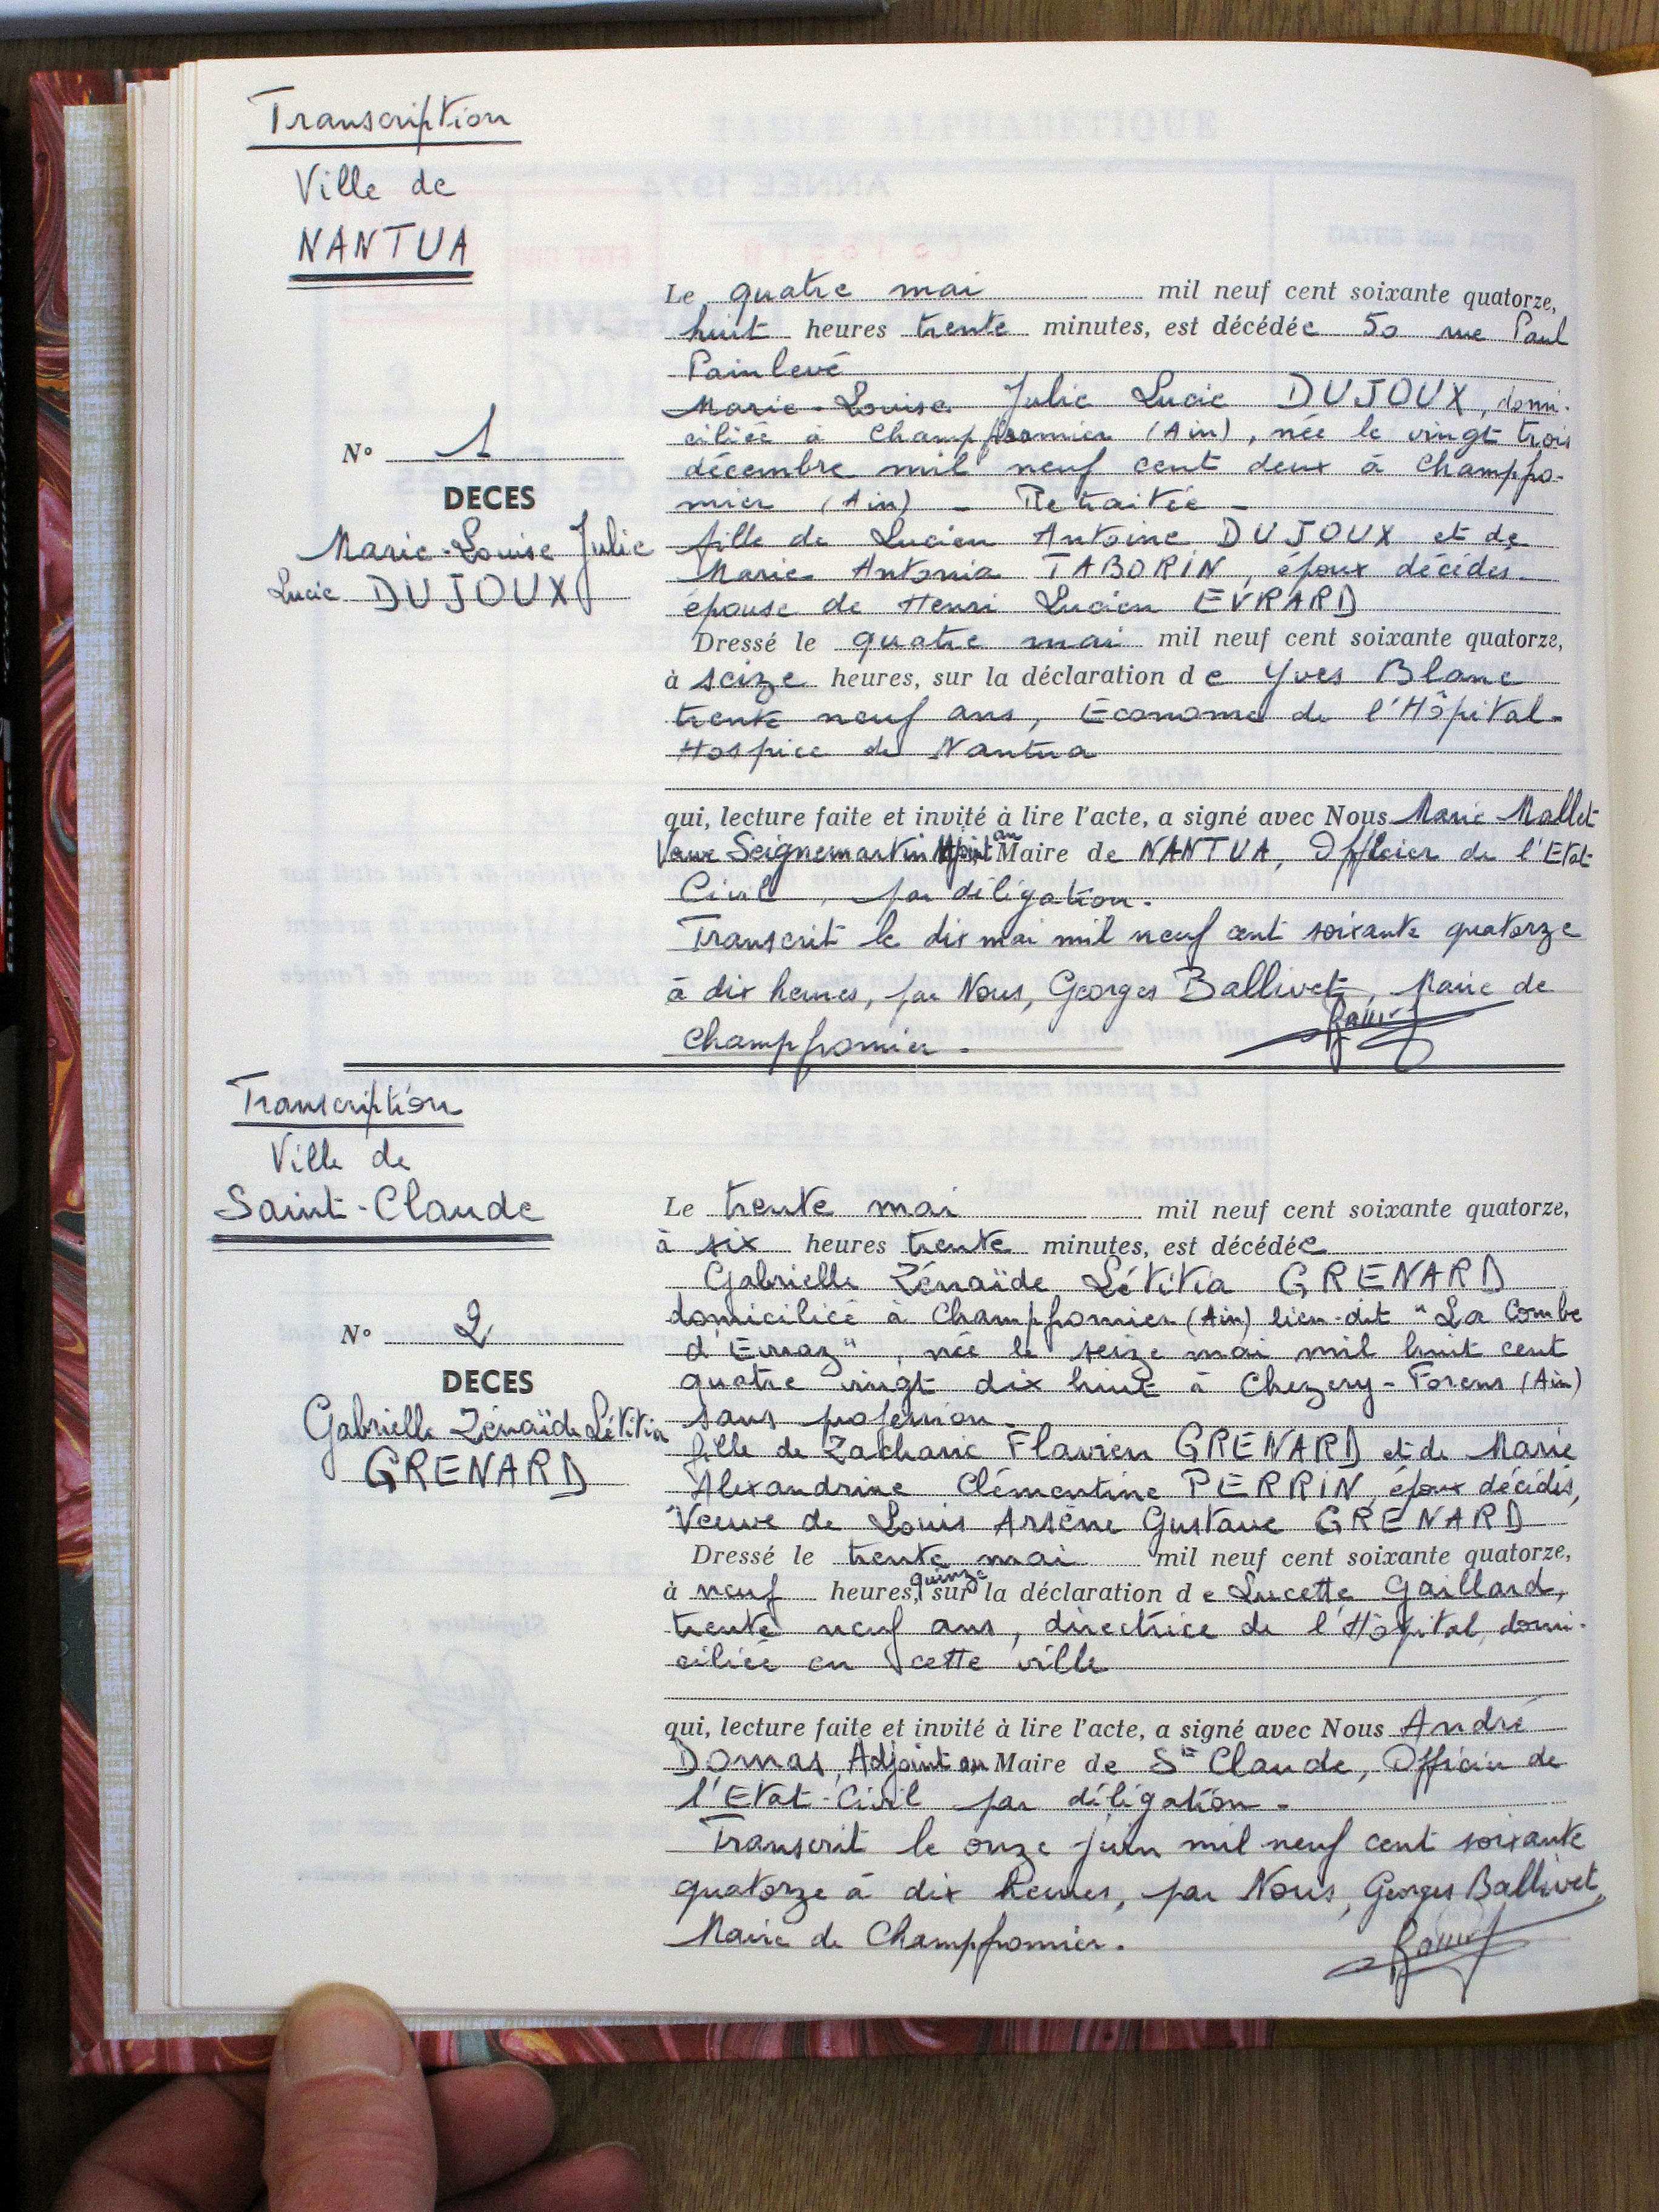 Transcription
Ville de
NANTUA
Le quatre mai mil neuf cent soixante quatorze,
huit heures trente minutes, est décédée 50 rue Paul
Painlevé
Marie-Louise Julie Lucie DUJOUX, domi-
ciliée à Champfromier (Ain), née le vingt trois
décembre mil neuf cent deux à Champfro-
mier (Ain) - Retraitée -
fille de Lucien Antoine DUJOUX et de
Marie Antonia TABORIN, époux décédés.
épouse de Henri Lucien EVRARD
N° 1
DECES
Marie-Louise Julie
Lucie DUJOUX
Dressé le quatre mai mil neuf cent soixante quatorze,
à seize heures, sur la déclaration de Yves Blanc
trente neuf ans, Econome de l'Hôpital-
Hospice de Nantua
qui, lecture faite et invité à lire l'acte, a signé avec Nous Marie Mallet
Veuve Seignemartin Adjoint au Maire de NANTUA, Officier de l'Etat
Civil, par délégation.
Transcrit le dix mai mil neuf cent soixante quatorze
à dix heures, par Nous, Georges Ballivet, Maire de
Champfromier.
Transcription
Ville de
Saint-Claude
Le trente mai mil neuf cent soixante quatorze,
à six heures trente minutes, est décédée
Gabrielle Zénaïde Létitia GRENARD
domiciliée à Champfromier (Ain) lieu-dit "La Combe
d'Evuaz", née le seize mai mil huit cent
quatre vingt dix huit à Chezery-Forens (Ain)
sans profession.
fille de Zacharie Flavien GRENARD et de Marie
Alexandrine Clémentine PERRIN, époux décédés,
Veuve de Louis Arsène Gustave GRENARD
N° 2
DECES
Gabrielle Zénaïde Létitia
GRENARD
Dressé le trente mai mil neuf cent soixante quatorze,
à neuf heures, quinze sur la déclaration de Lucette Gaillard,
trente neuf ans, directrice de l'Hôpital, domi-
ciliée en cette ville
qui, lecture faite et invité à lire l'acte, a signé avec Nous André
Domas, Adjoint au Maire de St Claude, Officier de
l'Etat-Civil par délégation.
Transcrit le onze juin mil neuf cent soixante
quatorze à dix heures, par Nous, Georges Ballivet,
Maire de Champfromier.